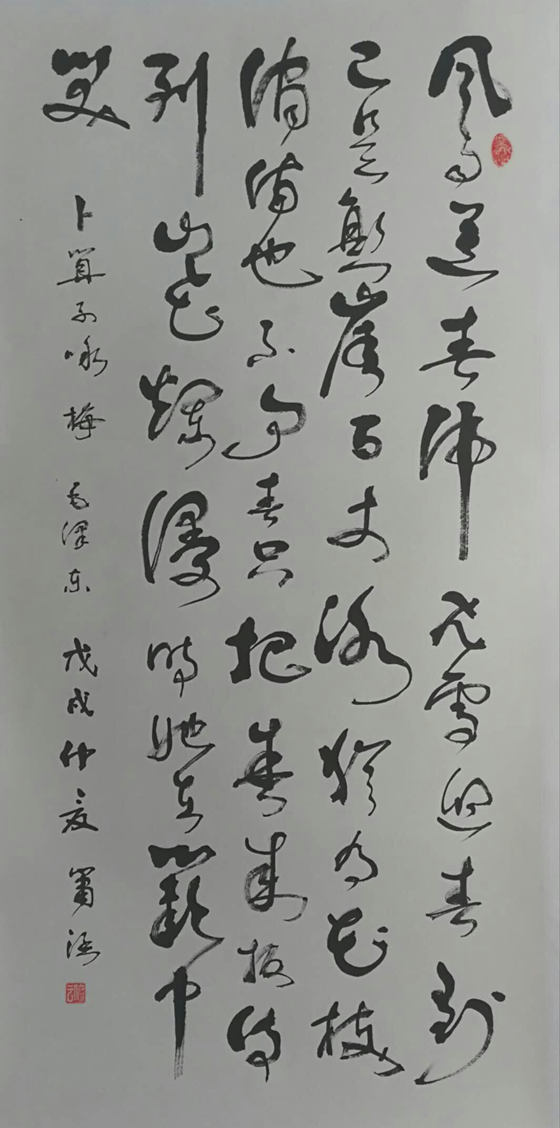 风雨送春归飞雪迎春到
已是懸崖百丈冰犹有花枝
俏俏也不争春只把春来报待
到山花爛漫时她在叢中
笑 卜算子咏梅 毛泽东 戊戌仲夏